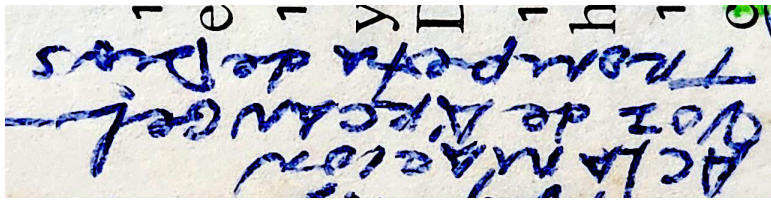 ACLAMACION
VOZ de ARCANGEL
TROMPETA de Dios